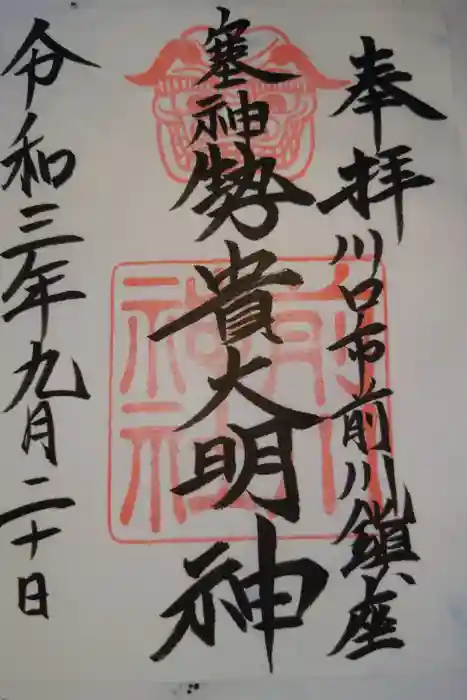 奉拝
川口市前川鎮座
塞神
勢貴大明神
令和三年九月二十日
前川
神社